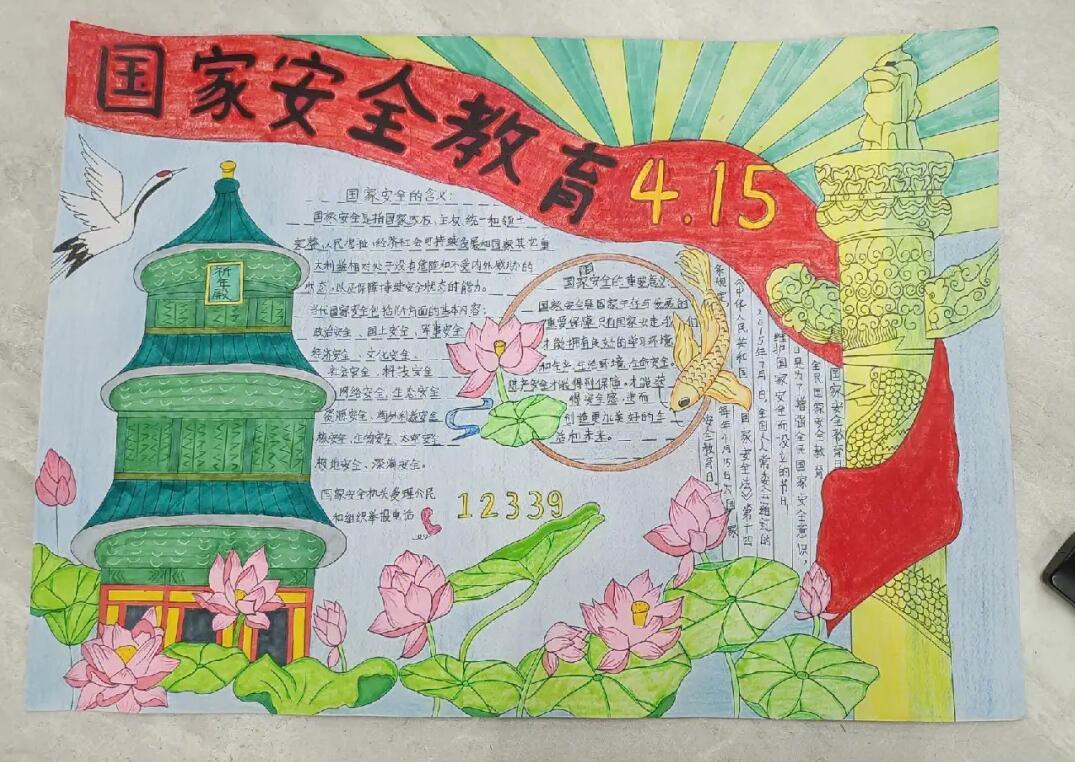 国家安全教育
4.15
祈年殿
国家安全的含义:
国家安全是指国家政权、主权、统一和领土
完整、人民福祉、经济社会可持续发展和国家其它重
大利益相对处于没有危险和不受内外威胁的
状态,以及保障持续安全状态的能力。
当代国家安全包括16个方面的基本内容:
政治安全、国土安全、军事安全
经济安全、文化安全、
社会安全、科技安全
网络安全、生态安全
资源安全、
核安全、生物安全、太空安全
极地安全、深海安全。
国家安全机关受理公民
和组织举报电话
12339
国家安全的重要意义:
国家安全是国家生存与发展的
重要保障,只有国家安定,我们
才能拥有良好的学习环境
和生产、生活环境,生命安全、
财产安全才能得到保障,才能获
得安全感,进而
创造更加美好的生
活和未来。
国家安全教育日
全民国家安全教育
日是为了增强全民国家安全意识,
维护国家安全而设立的节日。
2015年7月1日,全国人大常委会通过的
《中华人民共和国国家安全法》第十四
条规定,每年4月15日为国家
安全教育日